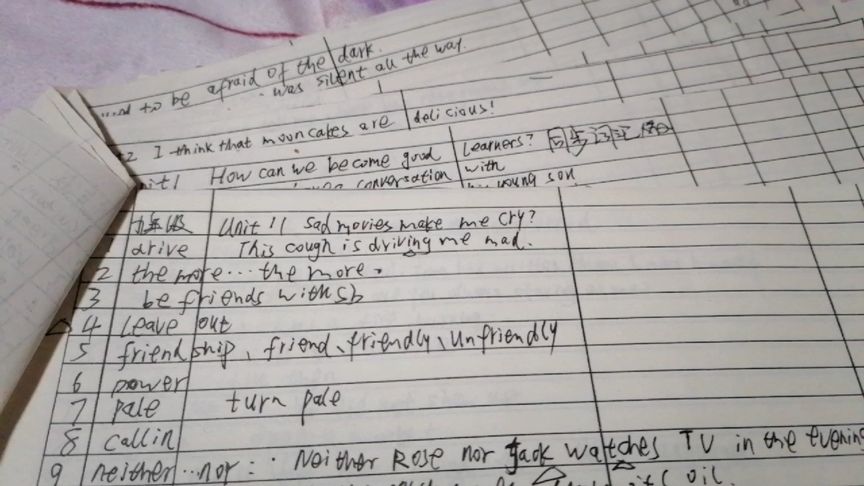 to be afraid of the dark.
was silent all the way.
2 I think that mooncakes are delicious!
nit 1 How can we become good learners?
conversation with
young son
九年级 Unit 11 Sad movies make me cry?
1 drive This cough is driving me mad.
2 the more... the more.
3 be friends with sb
4 leave out
5 friendship、friend、friendly、unfriendly
6 power
7 pale turn pale
8 callin
9 neither...nor: Neither Rose nor Jack watches TV in the evening
oil.